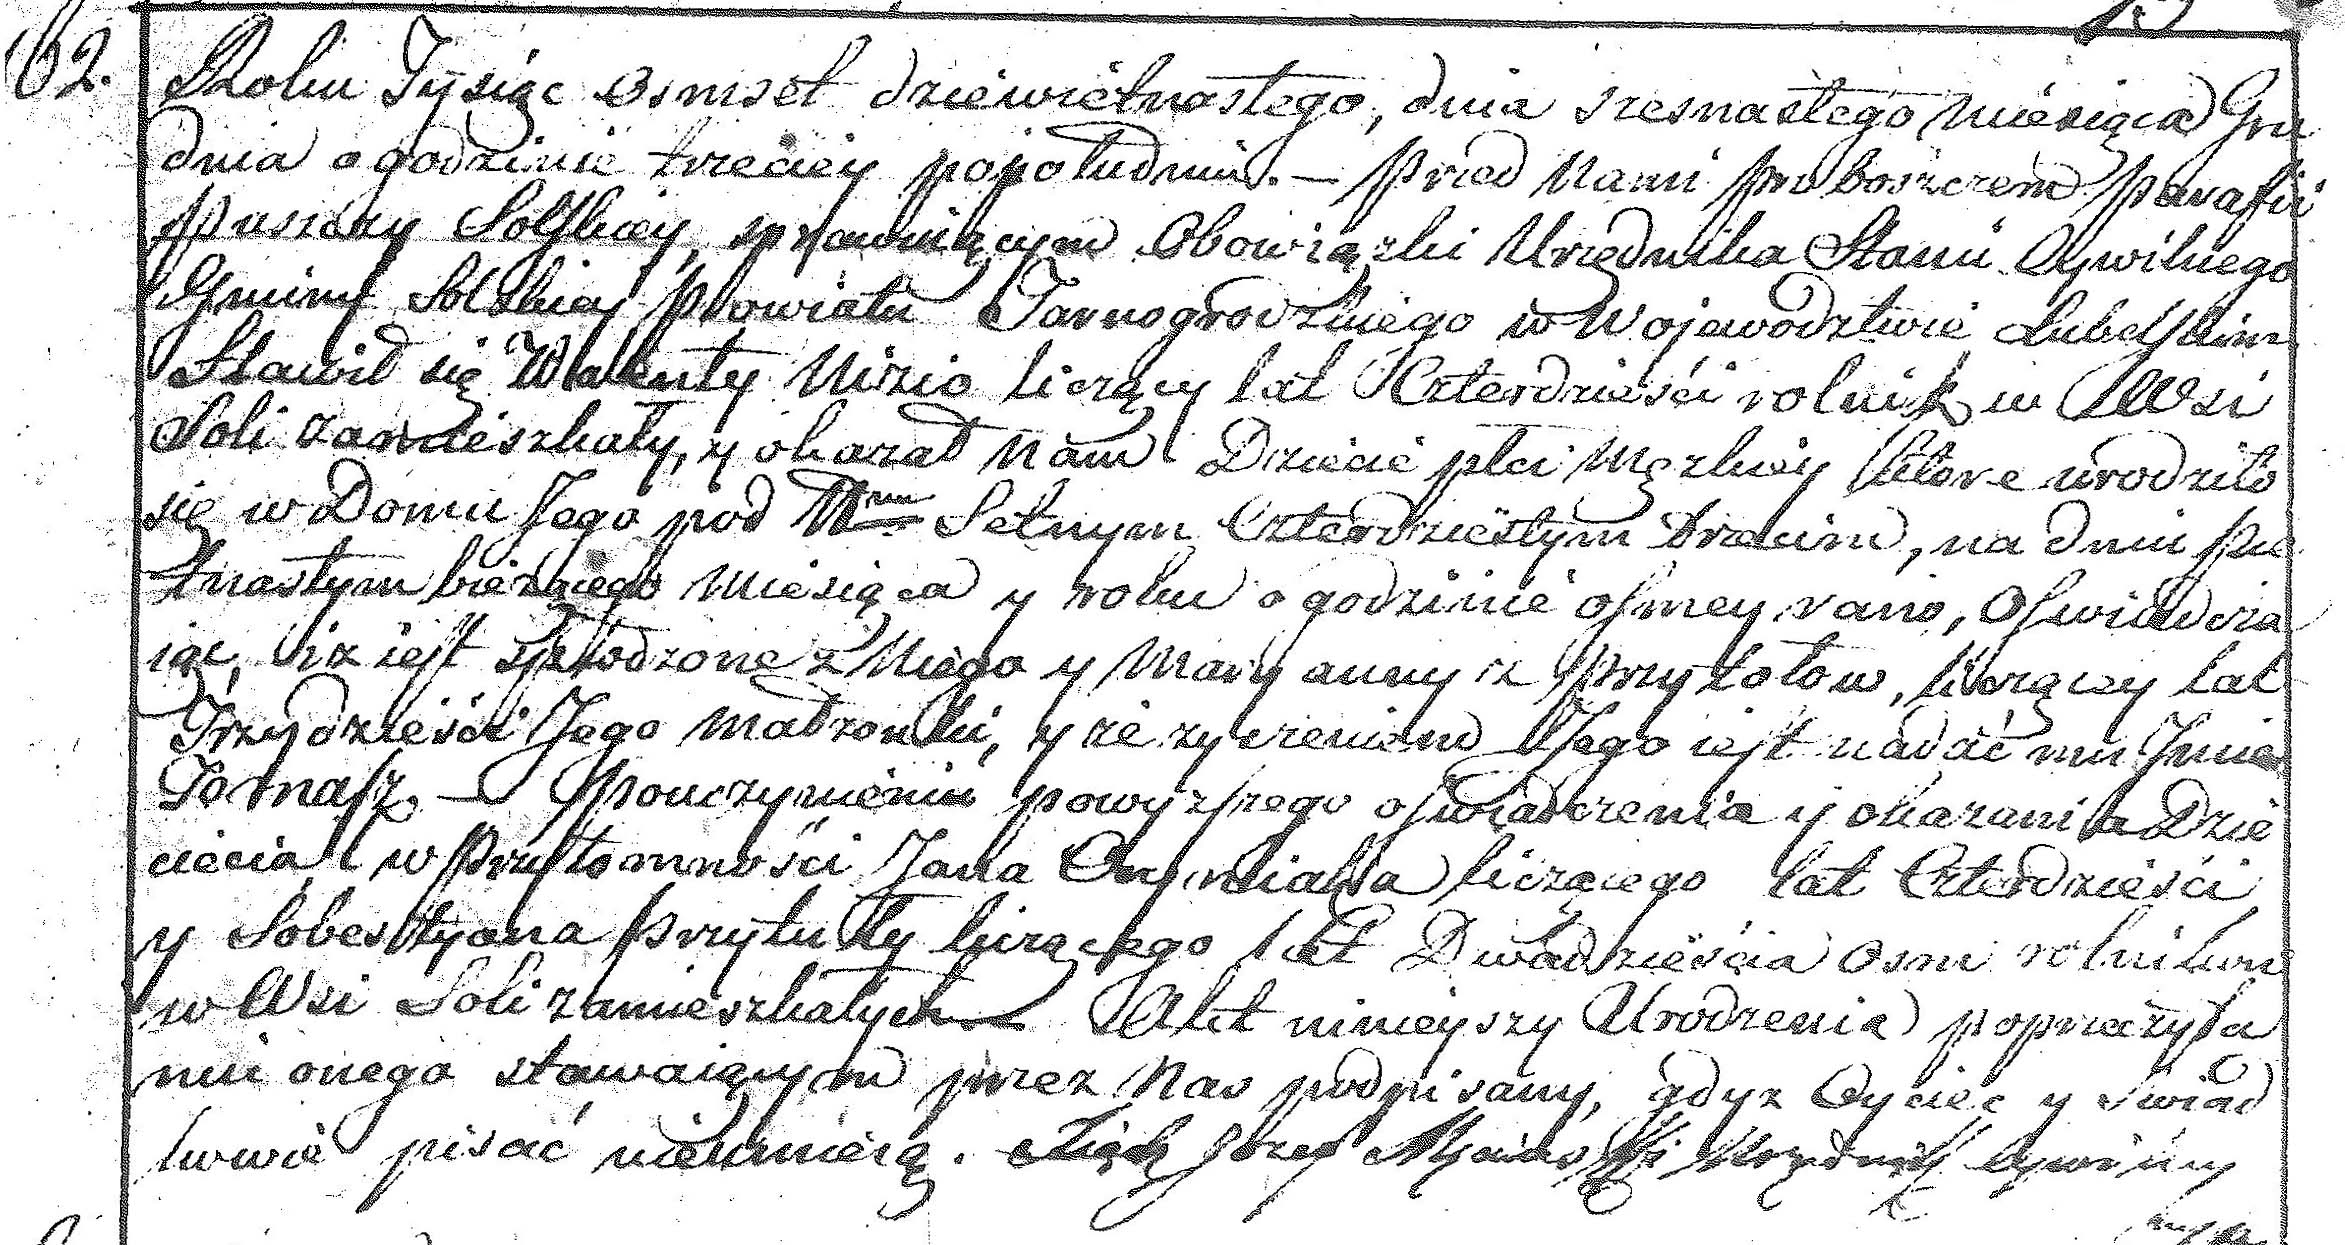 62.
Roku Tysiąc osmset dziewietnastego, dnia szesnastego Miesiąca Gru
dnia o godzinie trzeciey popołudniu. — Przed Nami Proboszczem Parafii
Puszczy Solskiey, sprawuiącym Obowiązki Urzędnika Stanu Cywilnego
Gminy Solskiey Powiatu Tarnogrodzkiego w Wojewodztwie Lubelskim
Stawił się Walenty Mizio liczący lat Czterdzieści rolnik w Wsi
Soli zamieszkały, y okazał Nam Dziecie płci Męzkiey ktore urodziło
się w Domu Jego pod Nrm Setnym Czterdziestym trzecim, na dniu Pię
tnastym bieżącego Miesiąca y roku o godzinie osmey rano, Oswiadcza
iąc, iz iest spłodzone z Niego y Maryanny z Przytołow, liczącey lat
Trzydzieści Jego Małzonki, y ze zyczeniem Jego iest nadać mu Jmie
Tomasz — Po uczynieniu powyzszego oswiadczenia y okazania Dzie
ciecia w Przytomności Jana liczącego lat Czterdzieści
y Sobestyana Przytuły liczącego lat Dwadzieścia osm rolnikow
w Wsi Soli zamieszkałych Akt ninieyszy Urodzenia po przeczyta
niu onego stawaiącym przez Nas podpisany, gdyz Oyciec y Swiad
kowie pisać nieumieią. Xiądz Jozef Urzędnik Cywilny